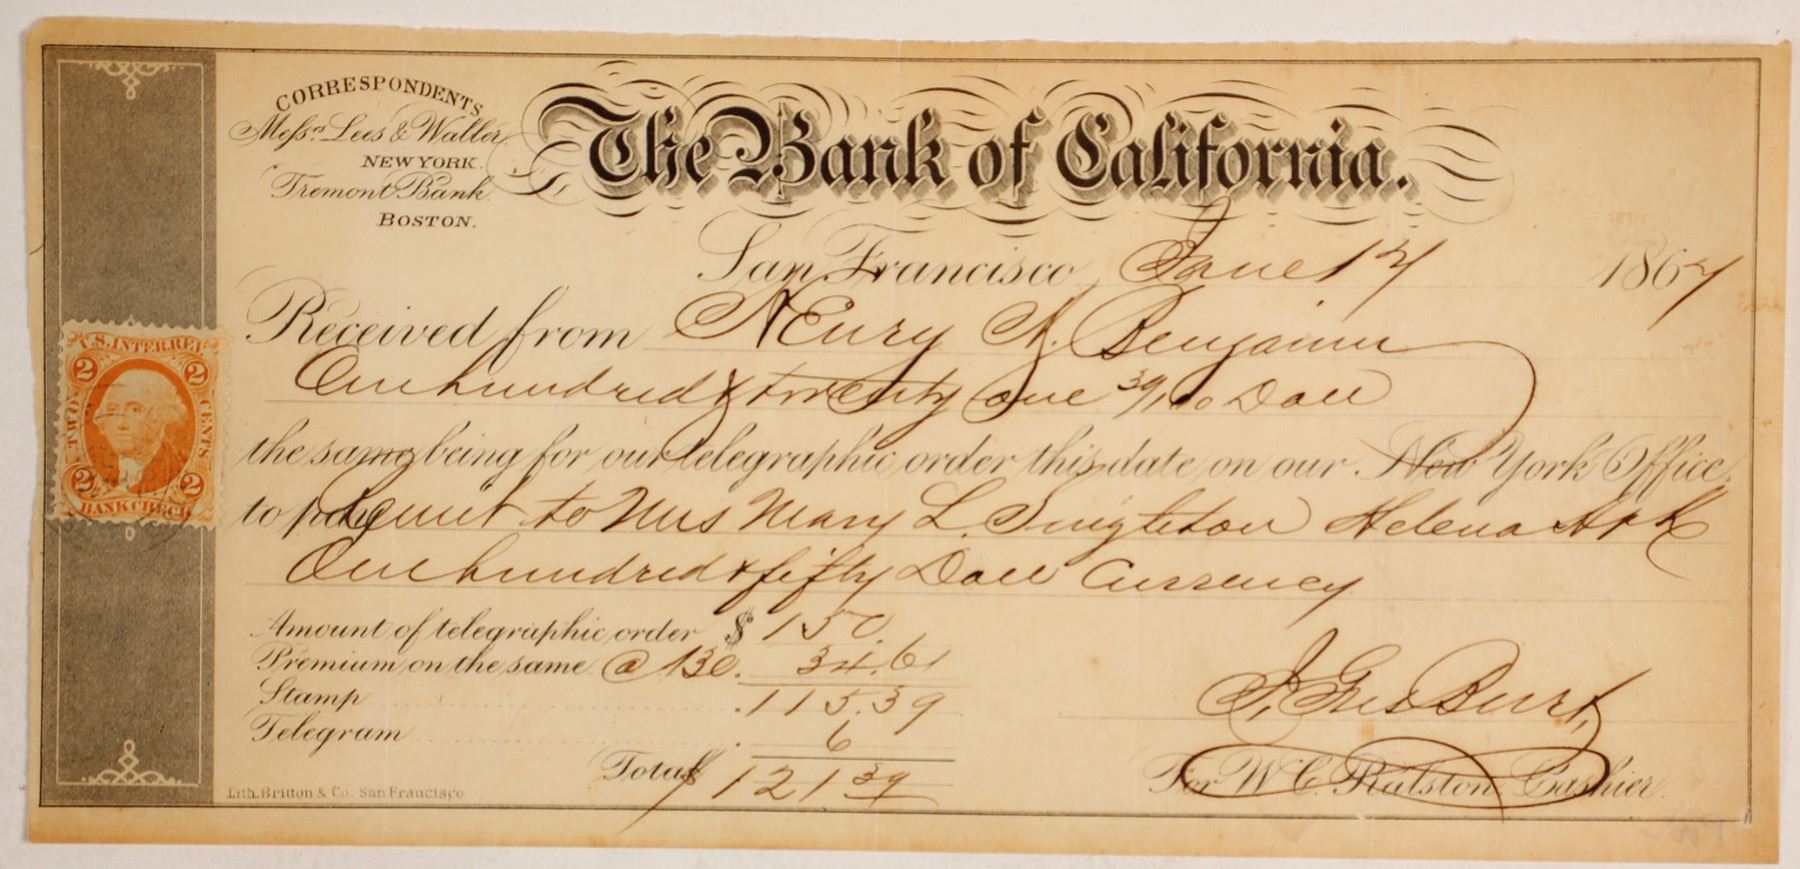 CORRESPONDENTS
Messrs. Lees & Waller.
NEW YORK.
Tremont Bank.
BOSTON.
The Bank of California.
San Francisco June 17 1867
Received from Henry A. Benjamin
One hundred & twenty one 39/100 Doll
the same being for our telegraphic order this date on our New York Office,
to pay Remit to Mrs Mary L. Singleton Helena Ark
One hundred & fifty Doll Currency
Amount of telegraphic order $ 150.
Premium on the same @ 130. 34.61
Stamp 115.39
Telegram 6
Total $ 121 39
J. Geo Burt,
For W. C. Ralston, Cashier.
Lith. Britton & Co. San Francisco.
U.S. INTER. REV.
2 2
TWO CENTS
2 2
BANK CHECK